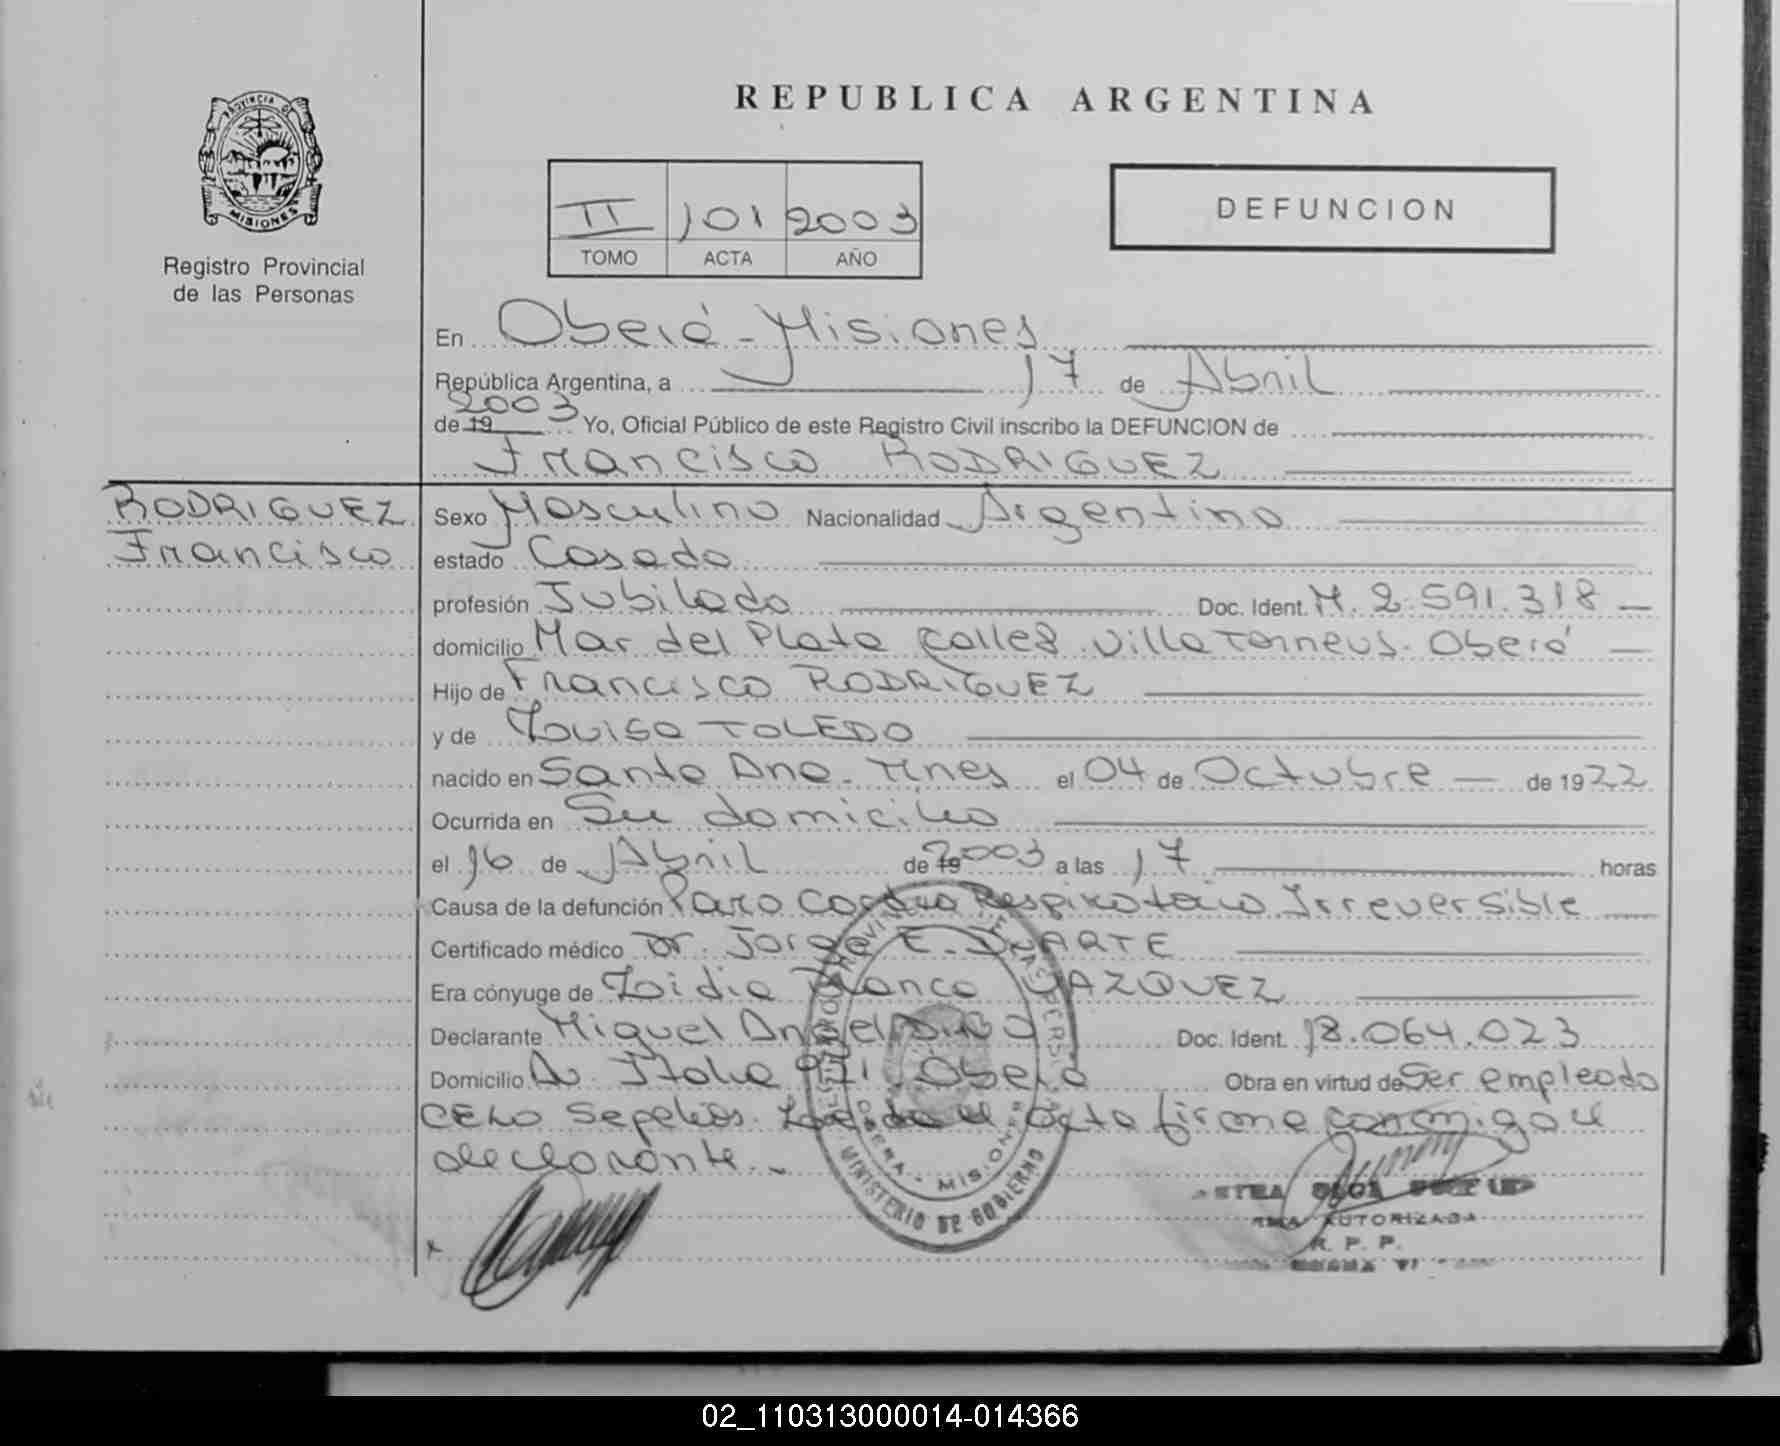 REPUBLICA ARGENTINA
PROVINCIA DE
MISIONES
Registro Provincial
de las Personas
II 101 2003
TOMO ACTA AÑO
DEFUNCION
En Oberá - Misiones
República Argentina, a 17 de Abril
2003
de 19 Yo, Oficial Público de este Registro Civil inscribo la DEFUNCION de
Francisco RODRIGUEZ
RODRIGUEZ
Francisco
Sexo Masculino Nacionalidad Argentino
estado Casado
profesión Jubilado Doc. Ident. M. 2.591.318
domicilio Mar del Plata Calle 8 Villa Torneus. Oberá
Hijo de Francisco RODRIGUEZ
y de Louisa TOLEDO
nacido en Santa Ana - Mnes el 04 de Octubre de 1922
Ocurrida en Su domicilio
el 16 de Abril de 19 2003 a las 17 horas
Causa de la defunción Paro Cardio Respiratorio Irreversible
Certificado médico Dr. Jorge E. DUARTE
Era cónyuge de Lidia Blanca VAZQUEZ
Declarante Miguel Angel Doc. Ident. 18.064.023
Domicilio Av. Italia 971 Oberá Obra en virtud de Ser empleado
CELO Sepelios. Leída el acta firma conmigo el
declarante.
MINISTERIO DE GOBIERNO
OBERA - MISIONES
AUTORIZADA
R. P. P.
02_110313000014-014366